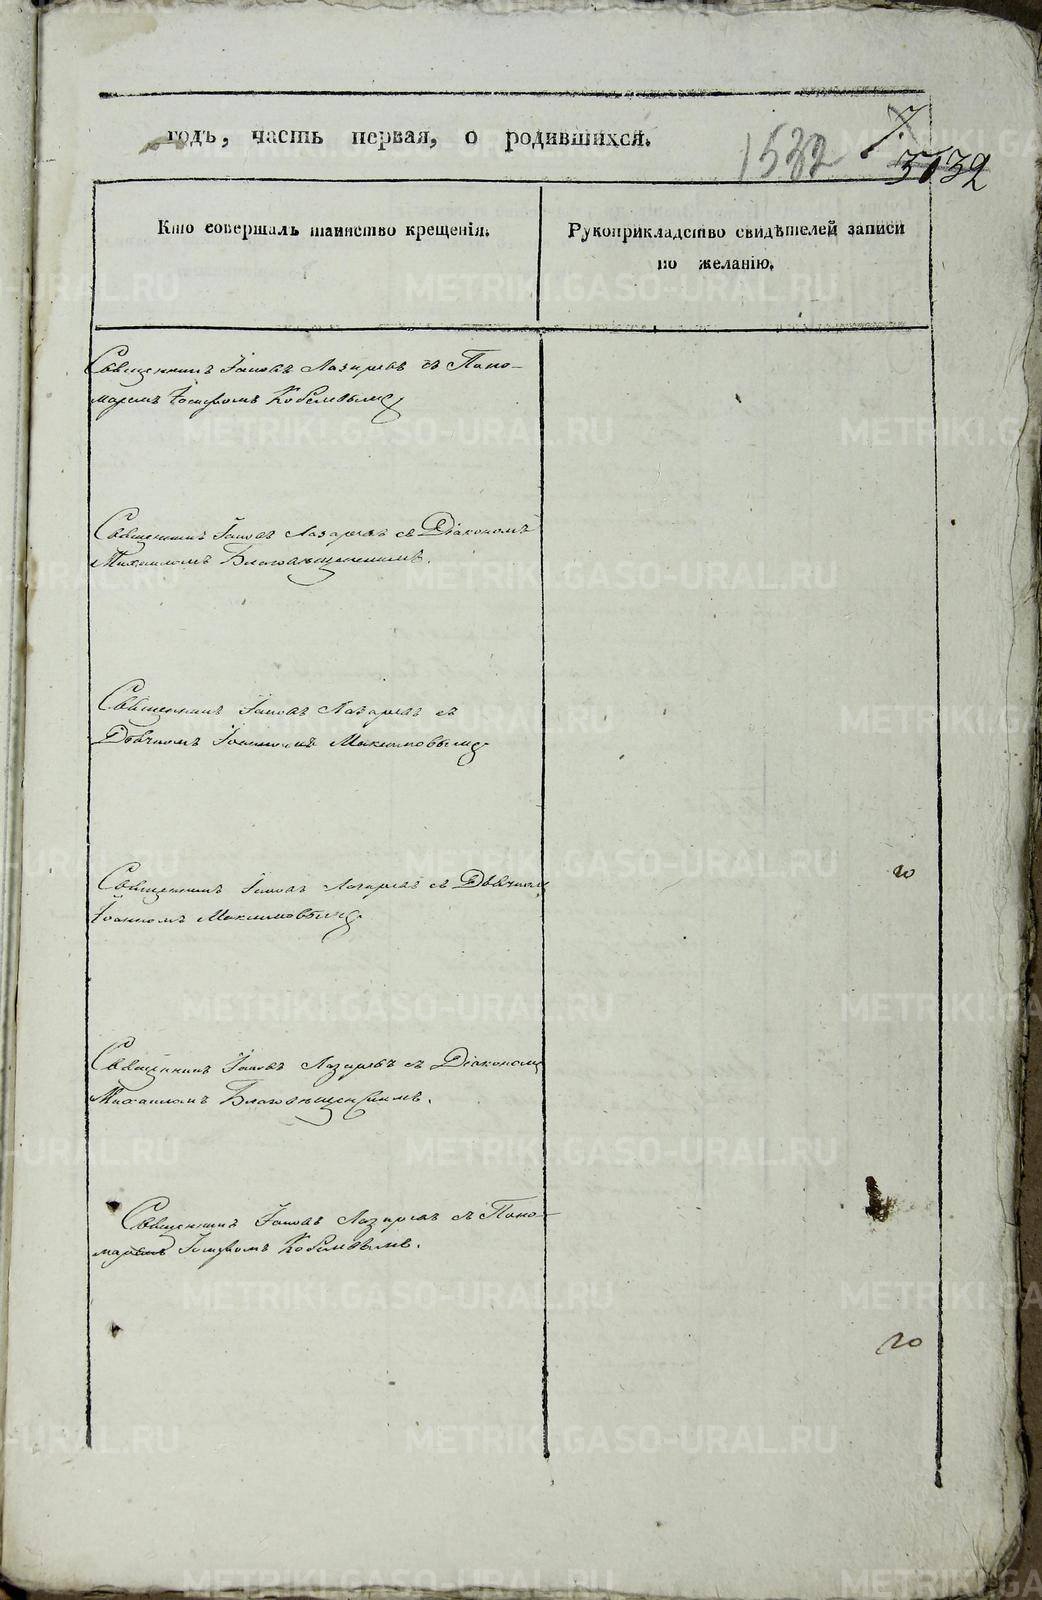 годъ, часть первая, о родившихся.
1532 7.
3132
Кто совершалъ таинство крещенія.
Рукоприкладство свидѣтелей записи
по желанію.
Священникъ Іаковъ Лазаревъ съ Поно-
маремъ Іосифомъ Кобелевымъ
Священникъ Іаковъ Лазаревъ съ Діакономъ
Михаиломъ Благовѣщенскимъ.
Священникъ Іаковъ Лазаревъ съ
Дьячкомъ Іоанномъ Максимовымъ
Священникъ Іаковъ Лазаревъ съ Дьячкомъ
Іоанномъ Максимовымъ
Священникъ Іаковъ Лазаревъ съ Діакономъ
Михаиломъ Благовѣщенскимъ.
Священникъ Іаковъ Лазаревъ съ Поно-
маремъ Іосифомъ Кобелевымъ.
METRIKI.GASO-URAL.RU